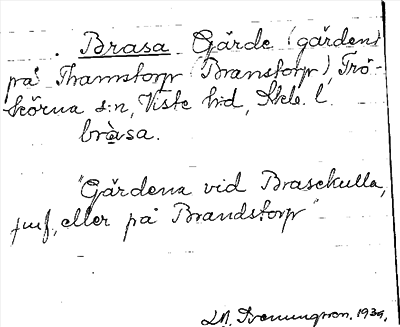 . Brasa Gärde (gärden)
på Thamstorp (Branstorp), Trö-
körna s:n, Viste h:d, Skbl. l.
bràsa.
"Gärdena vid Brasekulla,
jmf. eller på Brandstorp"
1939.